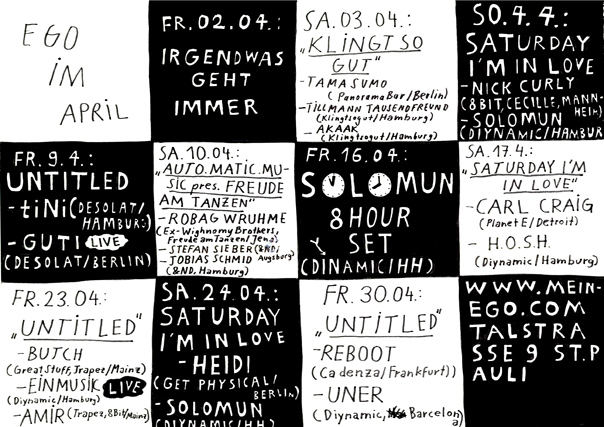 EGO
iM
APRIL
FR.02.04.:
IRGENDWAS
GEHT
IMMER
SA.03.04.:
„KLINGT SO
GUT"
-TAMA SUMO
(PanoramaBar/Berlin)
-TILLMANN TAUSENDFREUND
(Klingtsogut/Hamburg)
-AKAAK
(Klingtsogut/Hamburg)
SO.4.4.:
SATURDAY
I'M IN LOVE
-NICK CURLY
(8BIT, CECILLE, MANN-
HEIM)
-SOLOMUN
(DIYNAMIC/HAMBUR
FR.9.4.:
UNTITLED
-tiNi (DESOLAT/
HAMBURG)
-GUTI LIVE
(DESOLAT/BERLIN)
SA.10.04.:
„AUTO.MATIC.MU-
SIC pres. FREUDE
AM TANZEN"
-ROBAG WRUHME
(Ex-Wighnomy Brothers,
Freude am Tanzen/Jena)
-STEFAN SIEBER (&ND,
Augsburg)
-TOBIAS SCHMID
(&ND, Hamburg)
FR.16.04.:
SOLOMUN
8 HOUR
SET
(DINAMIC/HH)
SA.17.4.:
„SATURDAY I'M
IN LOVE"
-CARL CRAIG
(Planet E/Detroit)
-H.O.S.H.
(Diynamic/Hamburg)
FR.23.04.:
„UNTiTLED"
-BUTCH
(Great Stuff, Trapez/Mainz)
-EINMUSIK LIVE
(Diynamic/Hamburg)
-AMiR (Trapez, 8Bit/Mainz)
SA.24.04.:
SATURDAY
I'M IN LOVE
-HEIDI
(GET PHYSICAL/
BERLIN)
-SOLOMUN
(DIYNAMIC/HH)
FR.30.04.:
„UNTiTLED"
-REBOOT
(Cadenza/Frankfurt))
-UNER
(Diynamic, Barcelon
a)
WWW.MEIN-
EGO.COM
TALSTRA
SSE 9 ST.P
AULI